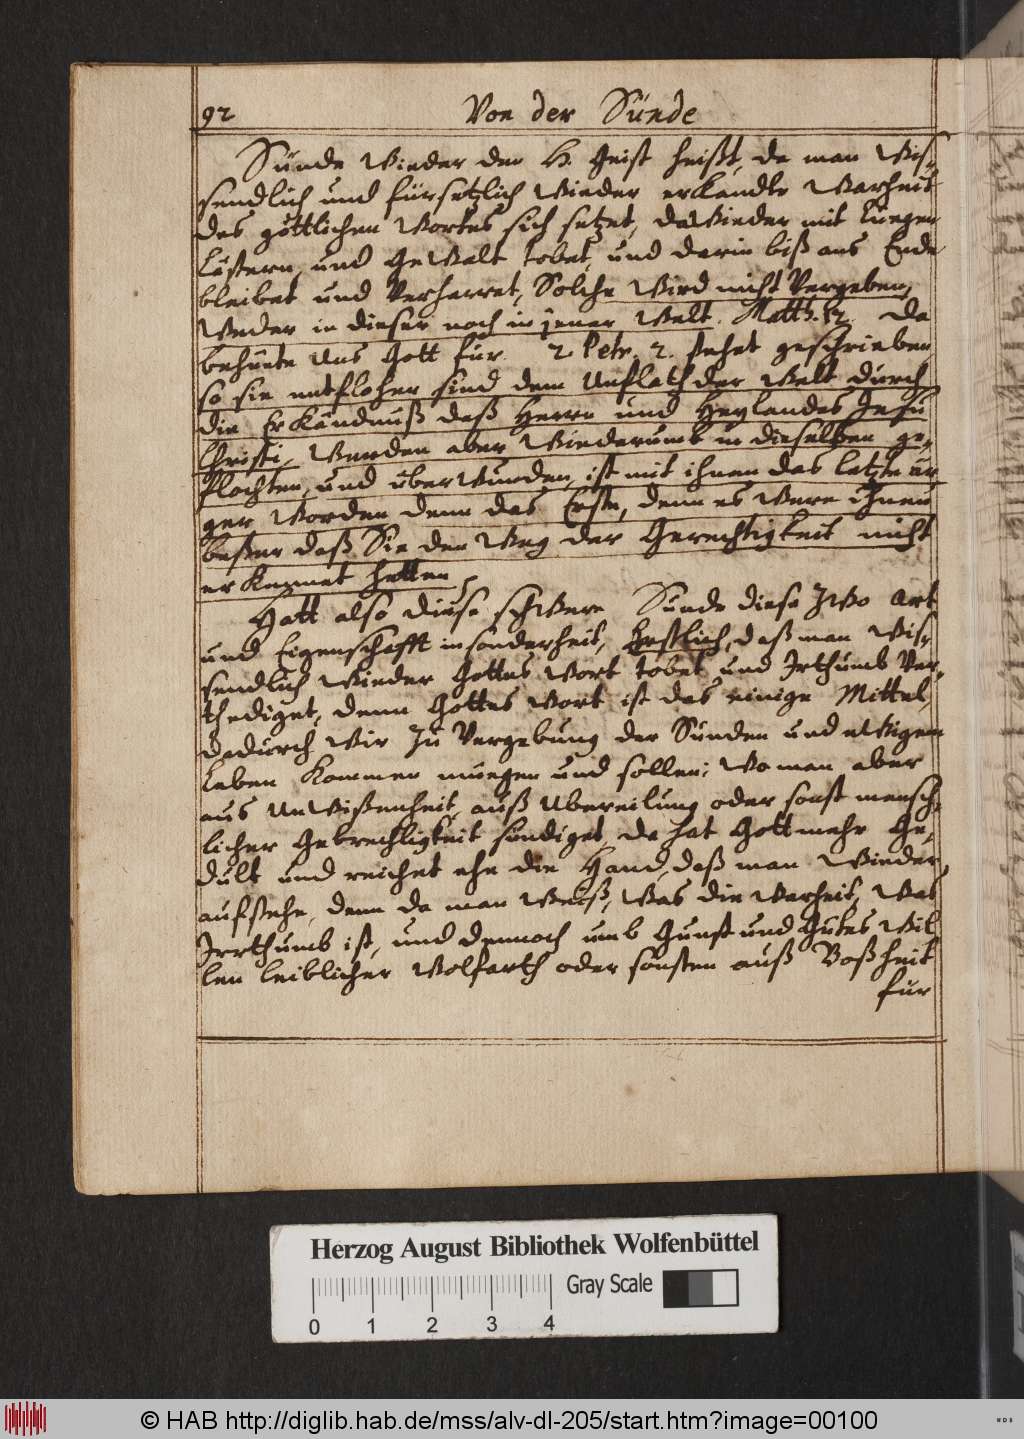 92 Von der Sünde
Sünde Wieder den H. Geist heißt, da man Wis-
sendlich und fürsetzlich Wieder erkandte Warheit
des göttlichen Wortes sich setzet, daWieder mit Luegen
Lästern, und GeWalt tobet, und darin biß ans Ende
bleibet und Verharret, Solche Wird nicht Vergeben,
Weder in dieser noch in jener Welt. Matth. 12. Da
behuete Uns Gott für. 2 Petr. 2. stehet geschrieben
so sie entflohen sind dem Unflath der Welt durch
die Erkändnuß deß Herrn und Heylandes Jesu
Christi, Werden aber Wiederumb in dieselben ge-
flochten, und überWunden, ist mit ihnen das letzte är
ger Worden denn das Erste, denn es Were ihnen
beßer daß Sie den Weg der Gerechtigkeit nicht
erkennet hetten.
Hatt also diese schWere Sünde diese ZWo Art
und Eigenschafft insonderheit, Erstlich, daß man Wis-
sendlich Wieder Gottes Wort tobet und Irthumb Ver-
thediget, denn Gottes Wort ist das einige Mittel,
dadurch Wir Zu Vergebung der Sünden und eWigem
Leben kommen muegen und sollen; Wo man aber
aus UnWißenheit, auß Ubereilung oder sonst mensch-
licher Gebrechligkeit sündiget, da hat Gott mehr Ge-
dult und reichet ehe die Hand, daß man Wieder
aufstehe, denn da man Weiß, Was die Warheit, Was
Irrthumb ist, und dennoch umb Gunst und Gutes Wil
len leiblicher Wolfarth oder sonsten auß Boßheit
für
Herzog August Bibliothek Wolfenbüttel
Gray Scale
0 1 2 3 4
© HAB http://diglib.hab.de/mss/alv-dl-205/start.htm?image=00100